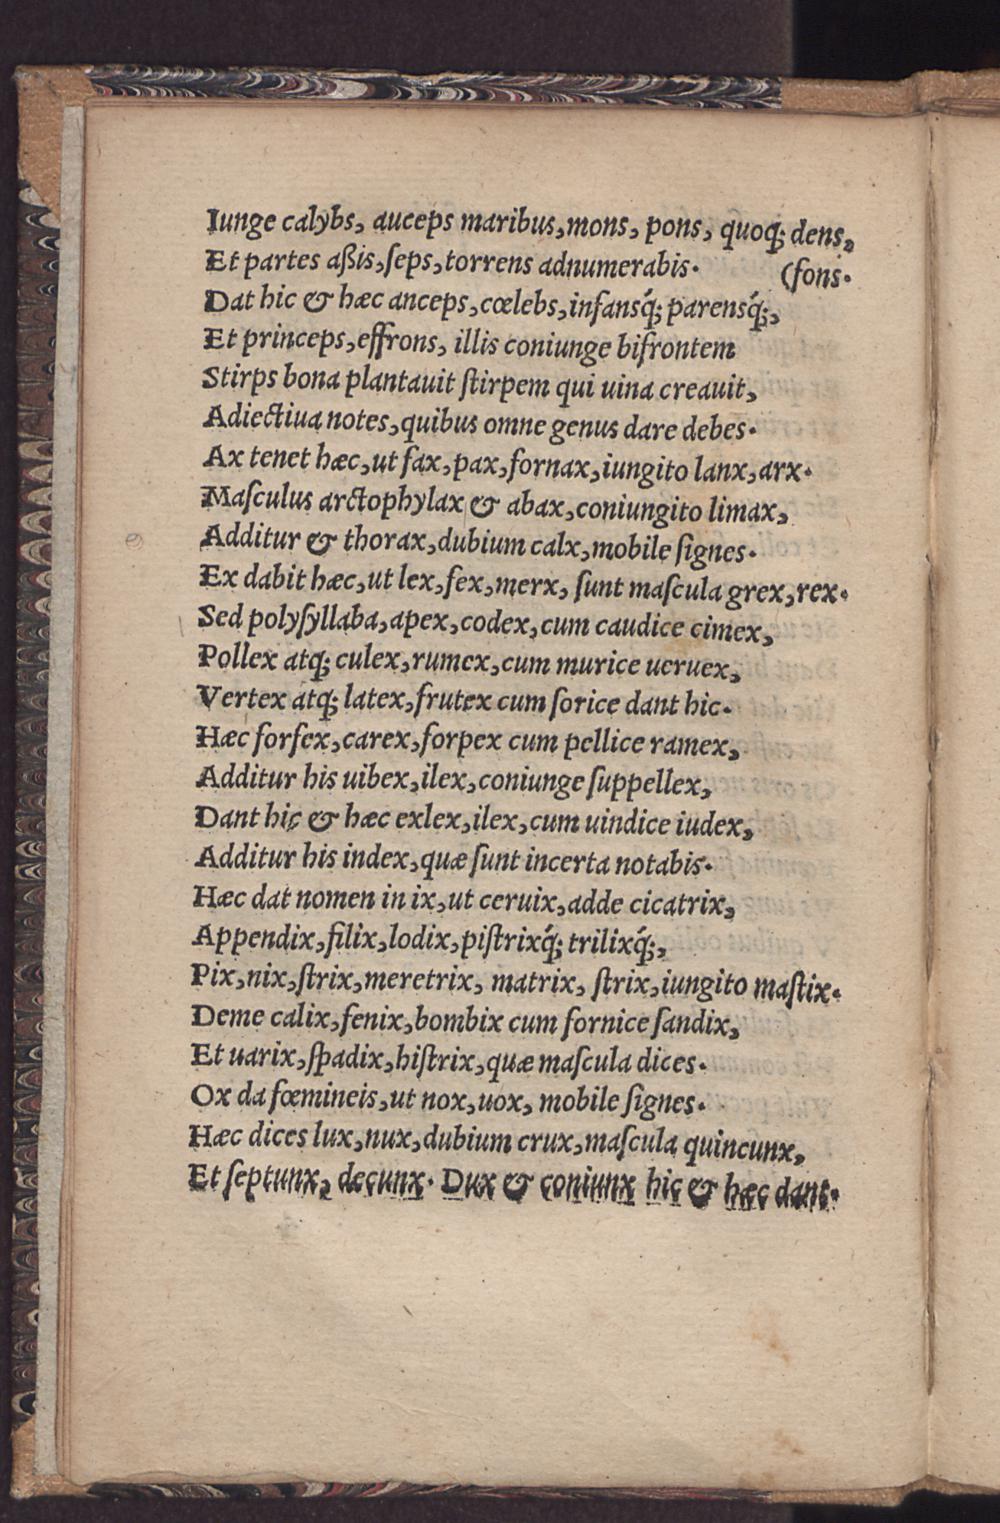 Iunge calybs, auceps maribus, mons, pons, quoq; dens,
Et partes aßis, ſeps, torrens adnumerabis.
(fons.
Dat hic & hæc anceps, cœlebs, infansq́; parensq́;,
Et princeps, effrons, illis coniunge bifrontem
Stirps bona plantauit ſtirpem qui uina creauit,
Adiectiua notes, quibus omne genus dare debes.
Ax tenet hæc, ut fax, pax, fornax, iungito lanx, arx.
Maſculus arctophylax & abax, coniungito limax,
Additur & thorax, dubium calx, mobile ſignes.
Ex dabit hæc, ut lex, fex, merx, ſunt maſcula grex, rex.
Sed polyſyllaba, apex, codex, cum caudice cimex,
Pollex atq; culex, rumex, cum murice ueruex,
Vertex atq; latex, frutex cum ſorice dant hic.
Hæc forfex, carex, forpex cum pellice ramex,
Additur his uibex, ilex, coniunge ſuppellex,
Dant hic & hæc exlex, ilex, cum uindice iudex,
Additur his index, quæ ſunt incerta notabis.
Hæc dat nomen in ix, ut ceruix, adde cicatrix,
Appendix, filix, lodix, piſtrixq́; trilixq́;,
Pix, nix, ſtrix, meretrix, matrix, ſtrix, iungito maſtix.
Deme calix, fenix, bombix cum fornice ſandix,
Et uarix, ſpadix, hiſtrix, quæ maſcula dices.
Ox da fœmineis, ut nox, uox, mobile ſignes.
Hæc dices lux, nux, dubium crux, maſcula quincunx,
Et ſeptunx, decunx. Dux & coniunx hic & hæc dant.